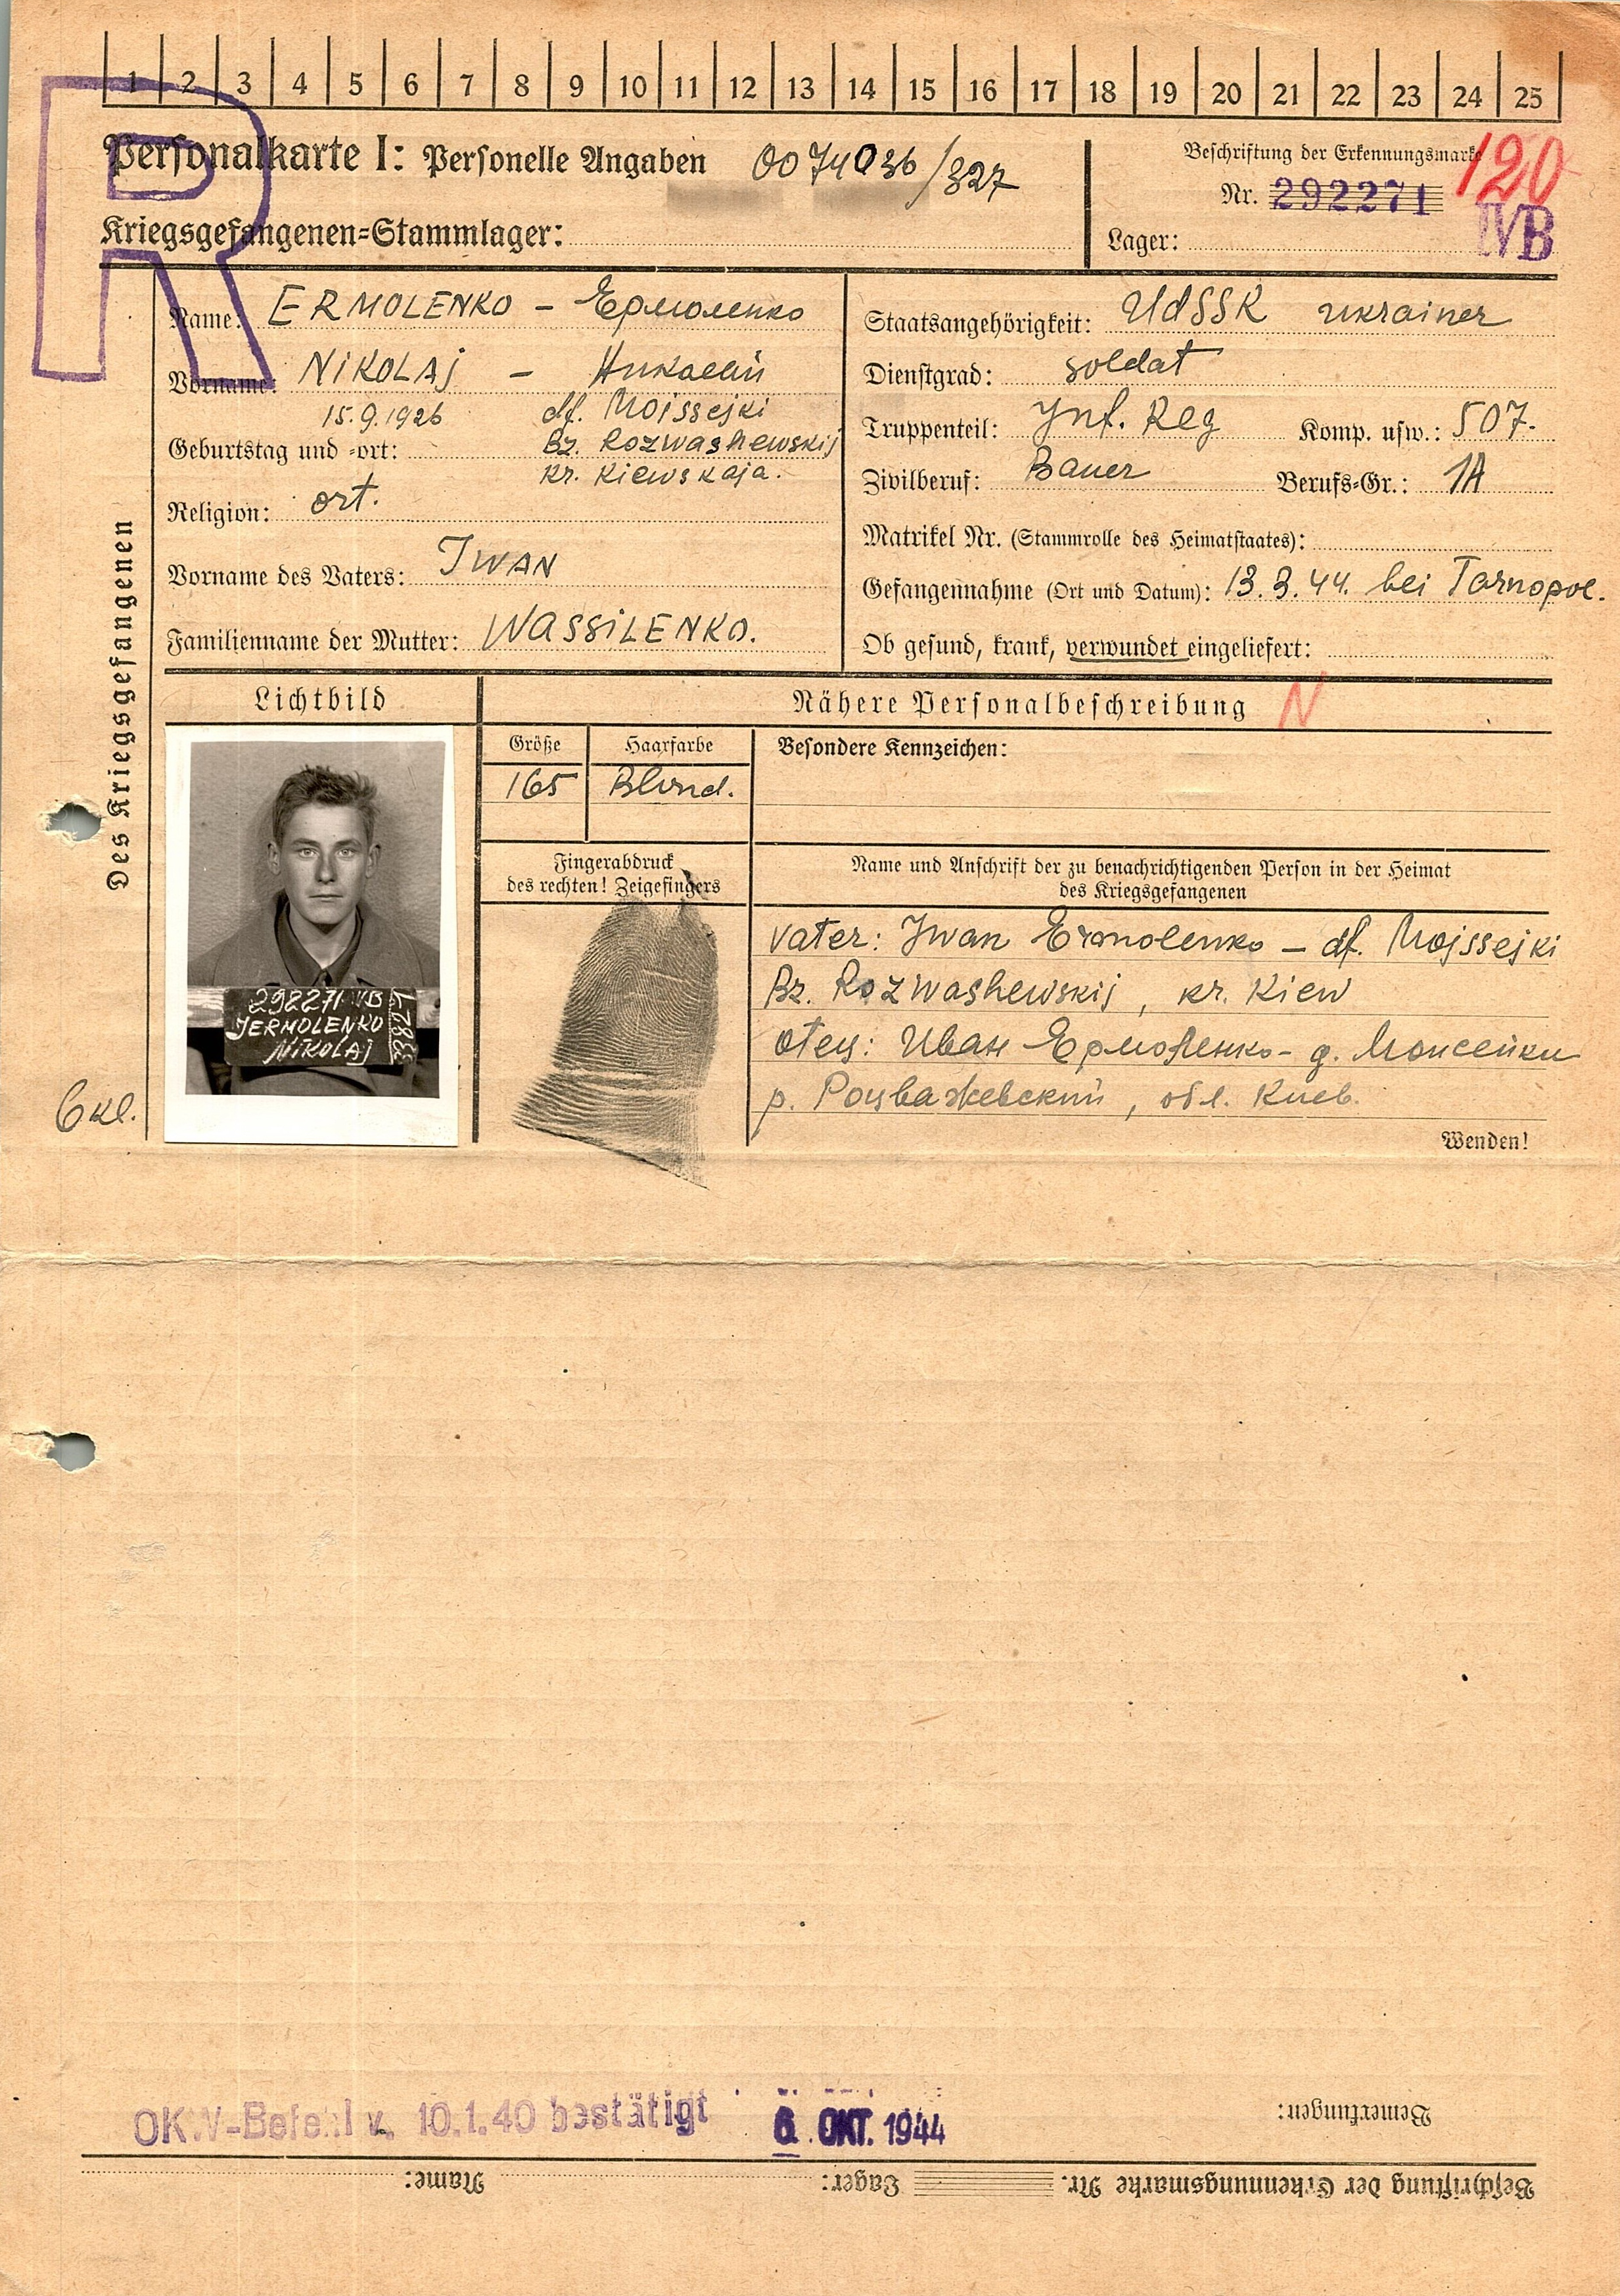 1 2 3 4 5 6 7 8 9 10 11 12 13 14 15 16 17 18 19 20 21 22 23 24 25
R
Personalkarte I: Personelle Angaben 0074036/327
Beschriftung der Erkennungsmarke 120
Nr. 292271 IVB
Kriegsgefangenen-Stammlager:
Lager:
Des Kriegsgefangenen
Name: ERMOLENKO – Ермоленко
Vorname: NIKOLAJ – Николай
15.9.1926 df. Moissejki
Geburtstag und -ort: Bz. Rozwashewskij
kr. Kiewskaja.
Religion: ort.
Vorname des Vaters: IWAN
Familienname der Mutter: WASSILENKO.
Staatsangehörigkeit: UdSSR ukrainer
Dienstgrad: soldat
Truppenteil: Jnf. Reg Komp. usw.: 507.
Zivilberuf: Bauer Berufs-Gr.: 1A
Matrikel Nr. (Stammrolle des Heimatstaates):
Gefangennahme (Ort und Datum): 13.3.44. bei Tarnopol.
Ob gesund, krank, verwundet eingeliefert:
Lichtbild
Nähere Personalbeschreibung N
Größe Haarfarbe
165 Blond.
Besondere Kennzeichen:
Fingerabdruck
des rechten! Zeigefingers
Name und Anschrift der zu benachrichtigenden Person in der Heimat
des Kriegsgefangenen
Vater: Iwan Ermolenko – df. Mojssejki
Bz. Rozwashewskij, kr. Kiew
отец: Иван Ермоленко - д. Моисейки
р. Розважевский, обл. Киев.
Wenden!
JERMOLENKO
NIKOLAJ
6 кл.
OKW-Befehl v. 10.1.40 bestätigt 6. OKT. 1944
Bemerkungen:
Beschriftung der Erkennungsmarke Nr. Lager: Name: